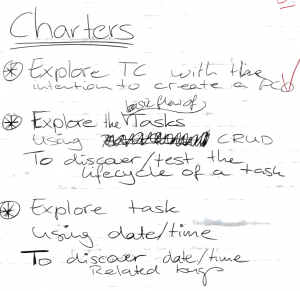 Charters
Explore TC with the
intention to create a PC
basic flow of
Explore the Tasks
Using CRUD
To discover/test the
lifecycle of a task
Explore task
Using date/time
To discover date/time
Related bugs